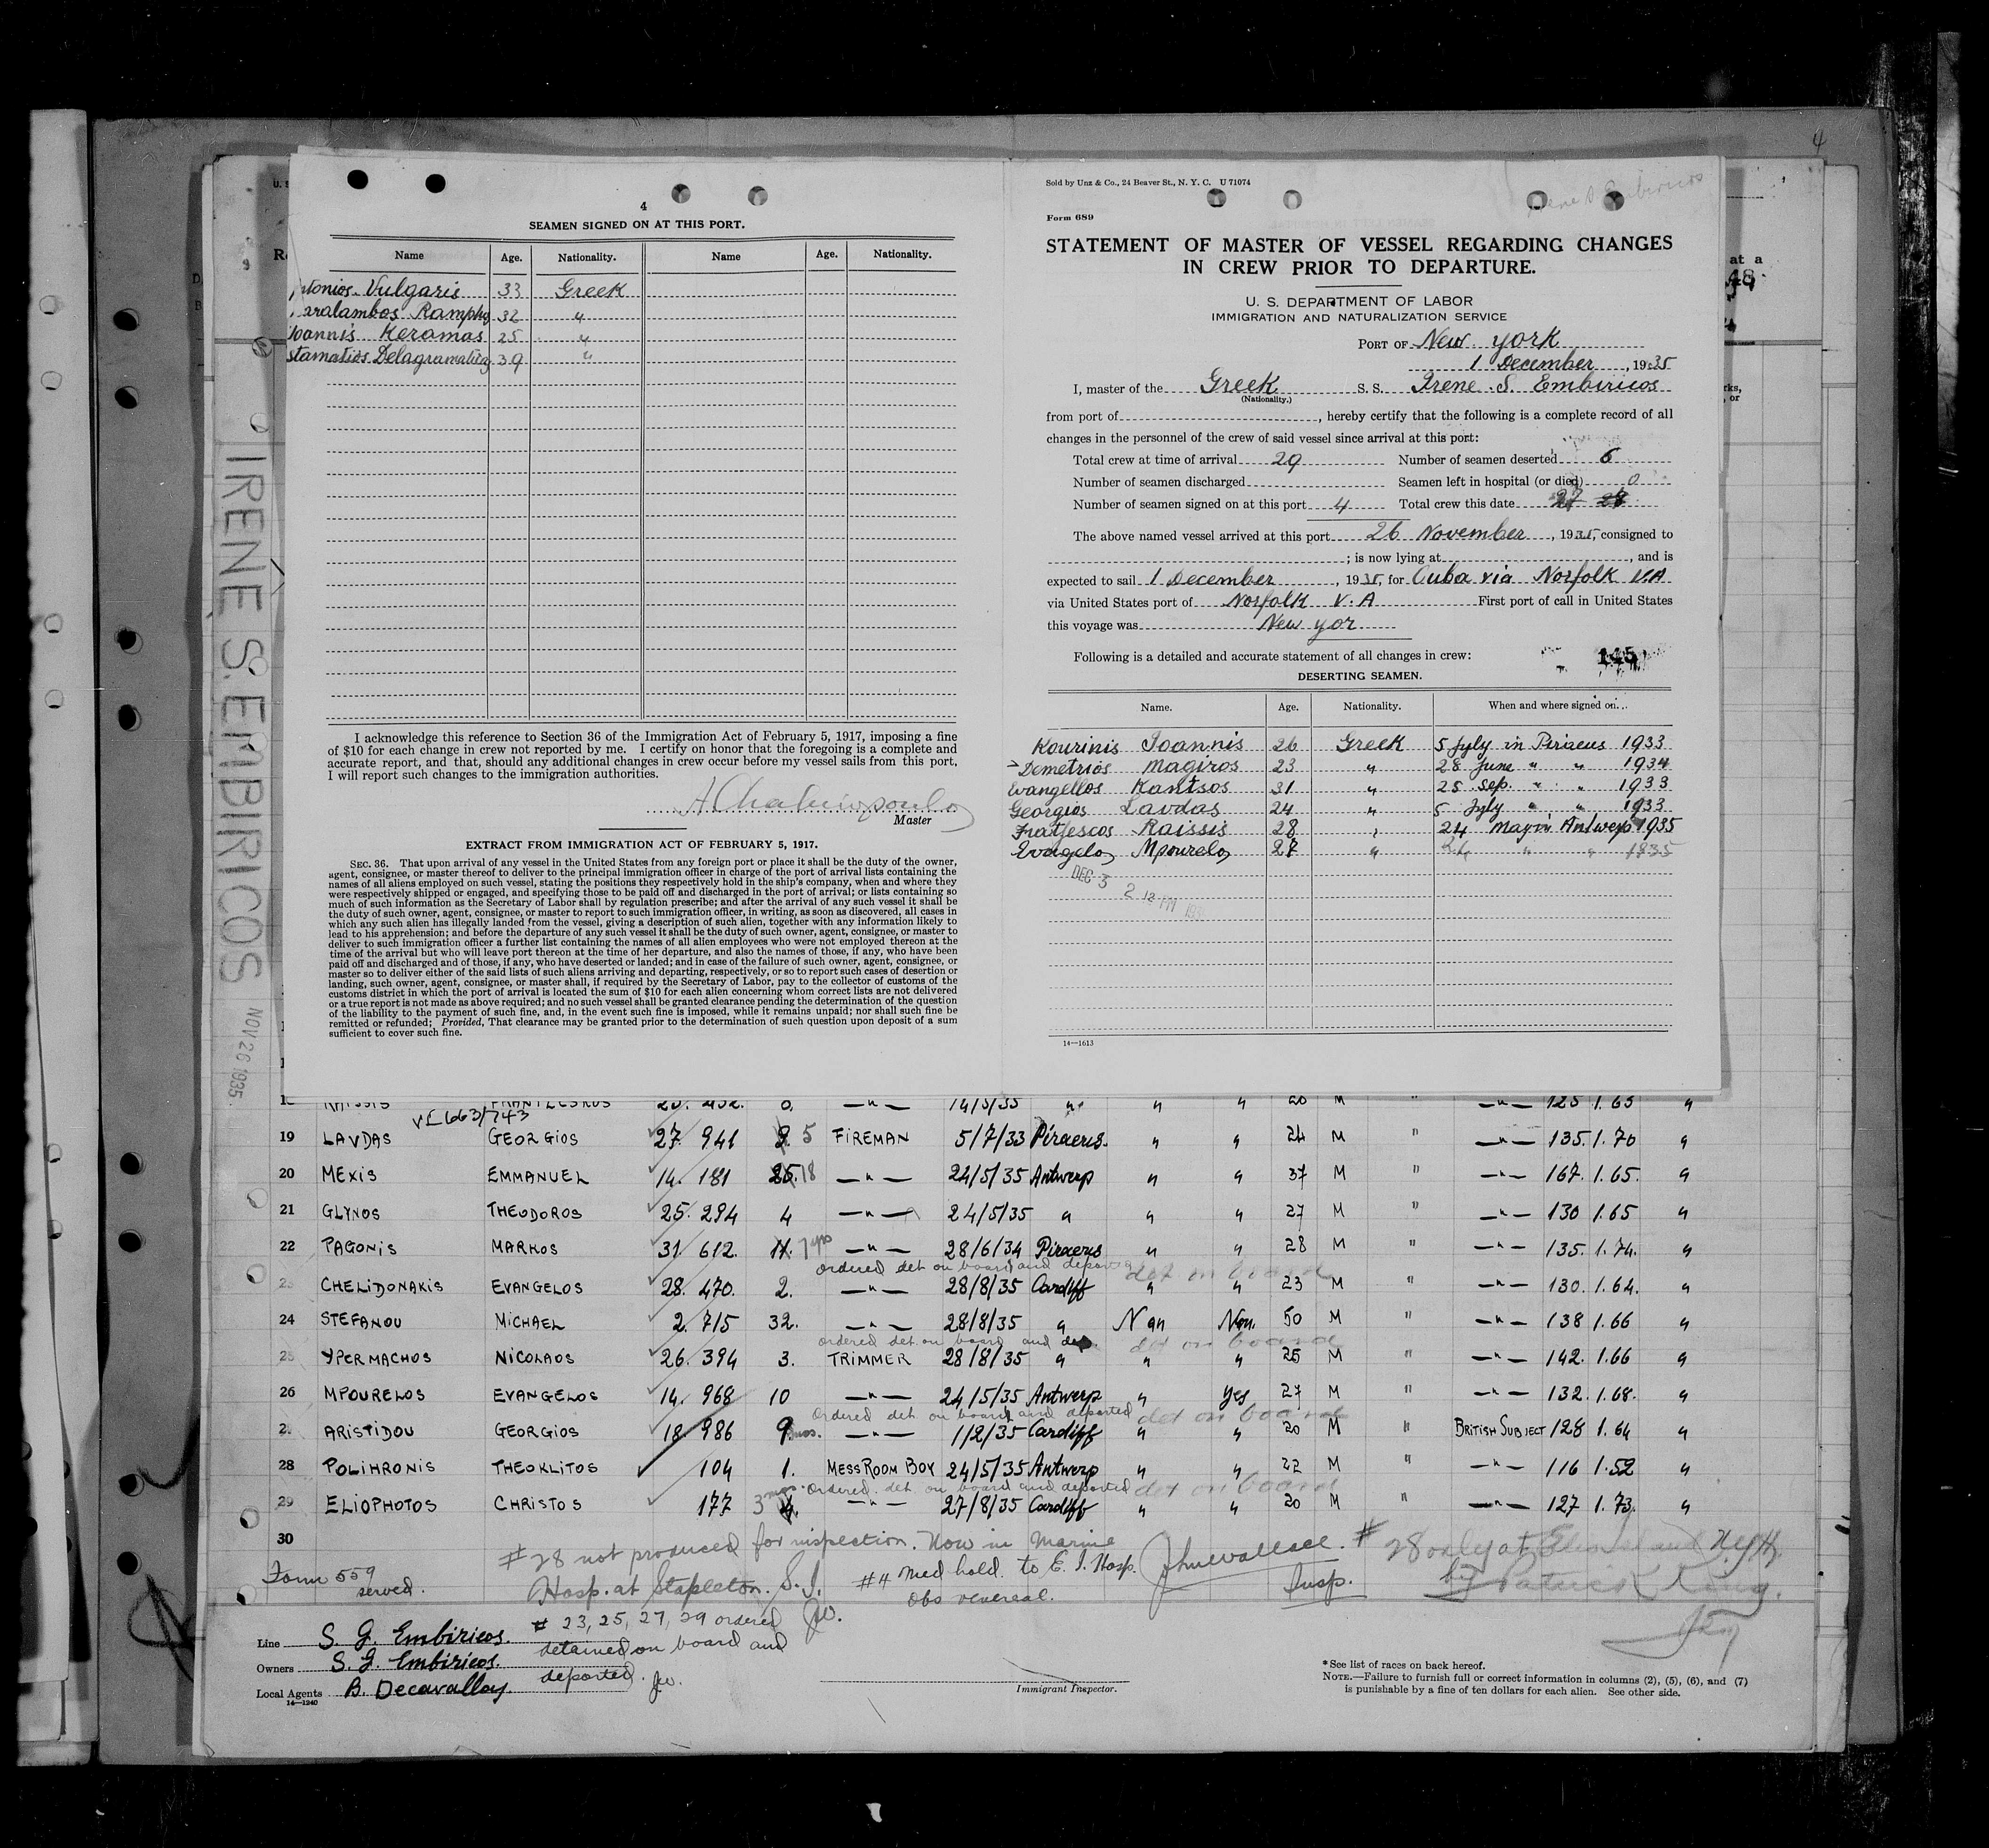 4
SEAMEN SIGNED ON AT THIS PORT.
Name Age. Nationality. Name Age. Nationality.
Vulgaris 33 Greek
32 "
Keramas 25 "
Stamatios 39 "
I acknowledge this reference to Section 36 of the Immigration Act of February 5, 1917, imposing a fine
of $10 for each change in crew not reported by me. I certify on honor that the foregoing is a complete and
accurate report, and that, should any additional changes in crew occur before my vessel sails from this port,
I will report such changes to the immigration authorities.
Master
EXTRACT FROM IMMIGRATION ACT OF FEBRUARY 5, 1917.
SEC. 36. That upon arrival of any vessel in the United States from any foreign port or place it shall be the duty of the owner,
agent, consignee, or master thereof to deliver to the principal immigration officer in charge of the port of arrival lists containing the
names of all aliens employed on such vessel, stating the positions they respectively hold in the ship's company, when and where they
were respectively shipped or engaged, and specifying those to be paid off and discharged in the port of arrival; or lists containing so
much of such information as the Secretary of Labor shall by regulation prescribe; and after the arrival of any such vessel it shall be
the duty of such owner, agent, consignee, or master to report to such immigration officer, in writing, as soon as discovered, all cases in
which any such alien has illegally landed from the vessel, giving a description of such alien, together with any information likely to
lead to his apprehension; and before the departure of any such vessel it shall be the duty of such owner, agent, consignee, or master to
deliver to such immigration officer a further list containing the names of all alien employees who were not employed thereon at the
time of the arrival but who will leave port thereon at the time of her departure, and also the names of those, if any, who have been
paid off and discharged and of those, if any, who have deserted or landed; and in case of the failure of such owner, agent, consignee, or
master so to deliver either of the said lists of such aliens arriving and departing, respectively, or so to report such cases of desertion or
landing, such owner, agent, consignee, or master shall, if required by the Secretary of Labor, pay to the collector of customs of the
customs district in which the port of arrival is located the sum of $10 for each alien concerning whom correct lists are not delivered
or a true report is not made as above required; and no such vessel shall be granted clearance pending the determination of the question
of the liability to the payment of such fine, and, in the event such fine is imposed, while it remains unpaid; nor shall such fine be
remitted or refunded; Provided, That clearance may be granted prior to the determination of such question upon deposit of a sum
sufficient to cover such fine.
Sold by Unz & Co., 24 Beaver St., N. Y. C. U 71074
Form 689
STATEMENT OF MASTER OF VESSEL REGARDING CHANGES
IN CREW PRIOR TO DEPARTURE.
U. S. DEPARTMENT OF LABOR
IMMIGRATION AND NATURALIZATION SERVICE
PORT OF New york
1 December, 1935
I, master of the Greek S. S. Irene S Embiricos
(Nationality.)
from port of , hereby certify that the following is a complete record of all
changes in the personnel of the crew of said vessel since arrival at this port:
Total crew at time of arrival 29 Number of seamen deserted 6
Number of seamen discharged Seamen left in hospital (or died) 0
Number of seamen signed on at this port 4 Total crew this date 27 28
The above named vessel arrived at this port 26 November, 1935, consigned to
; is now lying at , and is
expected to sail 1 December, 1935, for Cuba via Norfolk V.A
via United States port of Norfolk V.A First port of call in United States
this voyage was New yor
Following is a detailed and accurate statement of all changes in crew: 145
DESERTING SEAMEN.
Name. Age. Nationality. When and where signed on.
Kourinis Ioannis 26 Greek 5 July in Piraeus 1933
Demetrios Magiros 23 " 28 June " " 1934
Evangellos Kantsos 31 " 25 sep. " " 1933
Georgios Lavdas 24 " 5 July " " 1933
Raissis 28 " 24 May in Antwerp 1935
Evangelos Mpourelos 27 " 24 " "
DEC 3 2
14—1613
IRENE S. EMBIRICOS NOV 26 1935
19 LAVDAS GEORGIOS 27 941 5 FIREMAN 5/7/33 Piraeus " " 24 M " —"— 135. 1.70 "
20 MEXIS EMMANUEL 14. 181 18 —"— 24/5/35 Antwerp " " 37 M " —"— 167. 1.65. "
21 GLYNOS THEODOROS 25. 294 4 —"— 24/5/35 " " " 27 M " —"— 130 1.65 "
22 PAGONIS MARKOS 31 612. 7 yrs —"— 28/6/34 Piraeus " " 28 M " —"— 135. 1.74. "
ordered det on board and deported det on board
23 CHELIDONAKIS EVANGELOS 28. 470. 2. —"— 28/8/35 Cardiff " " 23 M " —"— 130. 1.64. "
24 STEFANOU MICHAEL 2. 715 32. —"— 28/8/35 " 50 M " —"— 138 1.66 "
ordered det. on board and det on board
25 YPERMACHOS NICOLAOS 26. 394 3. TRIMMER 28/8/35 " " " 25 M " —"— 142. 1.66 "
26 MPOURELOS EVANGELOS 14. 968 10 —"— 24/5/35 Antwerp " Yes 27 M " —"— 132. 1.68. "
Ordered det. on board and deported det on board
2. ARISTIDOU GEORGIOS 18. 986 9 mos. —"— 1/2/35 Cardiff " " 20 M " BRITISH SUBJECT 128 1.64 "
28 POLIHRONIS THEOKLITOS 104 1. MESS ROOM BOY 24/5/35 Antwerp " " 22 M " —"— 116 1.52 "
mos. Ordered. det. on board and deported det on board
29 ELIOPHOTOS CHRISTOS 177 3 —"— 27/8/35 Cardiff " " 20 M " —"— 127 1.73. "
30
# 28 not produced for inspection. Now in Marine
Hosp. at Stapleton. S. I.
#4 Med hold. to E. I. Hosp.
Obs venereal.
Insp.
Form 559
served.
# 23, 25, 27, 29 ordered
detained on board and
deported.
Line S. G. Embiricos.
Owners S. G. Embiricos.
Local Agents B. Decavallas.
14—1240
Immigrant Inspector.
* See list of races on back hereof.
NOTE.—Failure to furnish full or correct information in columns (2), (5), (6), and (7)
is punishable by a fine of ten dollars for each alien. See other side.